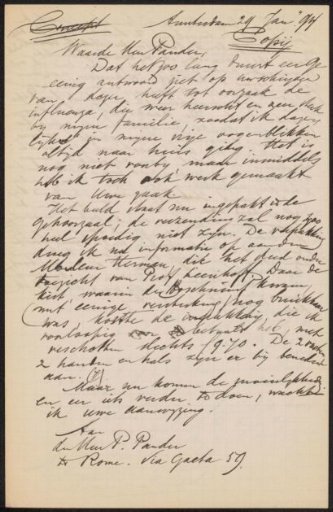 Concept Amsterdam 29 Jan 94
Copij
Waarde Heer Pander,
Dat het zoo lang duurt eer ge
eenig antwoord ziet op uw schrijven
van dezer, heeft tot oorzaak de
influenza, die weer heerscht en zeer sterk
bij mijne familie, zoodat ik dage-
lijks in mijne vrije oogenblikken
altijd naar huis ging. Het is
nog niet voorbij maar inmiddels
heb ik toch ook werk gemaakt
van Uwe zaak
Het beeld staat nu ingepakt in de
Gehoorzaal; de verzending zal nog zoo
heel spoedig niet zijn. De verpakking
droeg ik na informatie op aan den
Mouleur Herman, die het deed onder
toezicht van Prof. Daar de
kist, waarin de bezending kwam
(met eenige versterking) nog bruikbaar
was, kostte de verpakking, die ik
voorloopig heb
verschoten slechts f 9.70. De 2
handen en hals zijn er bij
aan. (?)
Maar nu komen de moeilijkheden
en eer iets verder te doen, wacht
ik uwe aanwijzing.
Aan
den Heer P. Pander
te Rome. Via Gaeta 59.